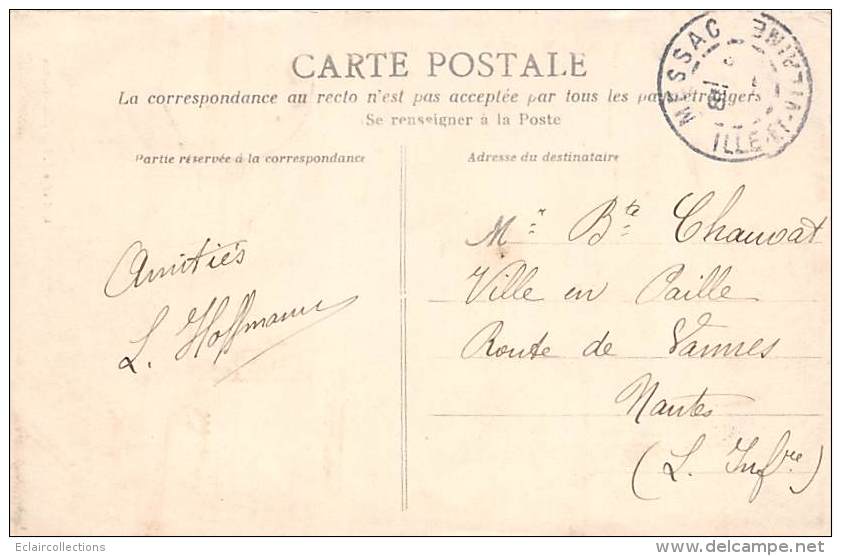 CARTE POSTALE
La correspondance au recto n'est pas acceptée par tous les pays étrangers
Se renseigner à la Poste
MESSAC
ILLE-ET-VILAINE
Partie réservée à la correspondance
Adresse du destinataire
Amitiés
L. Hoffmann
Mr Bte Chauvat
Ville en Paille
Route de Vannes
Nantes
(L. Infre)
Eclaircollections
www.delcampe.net